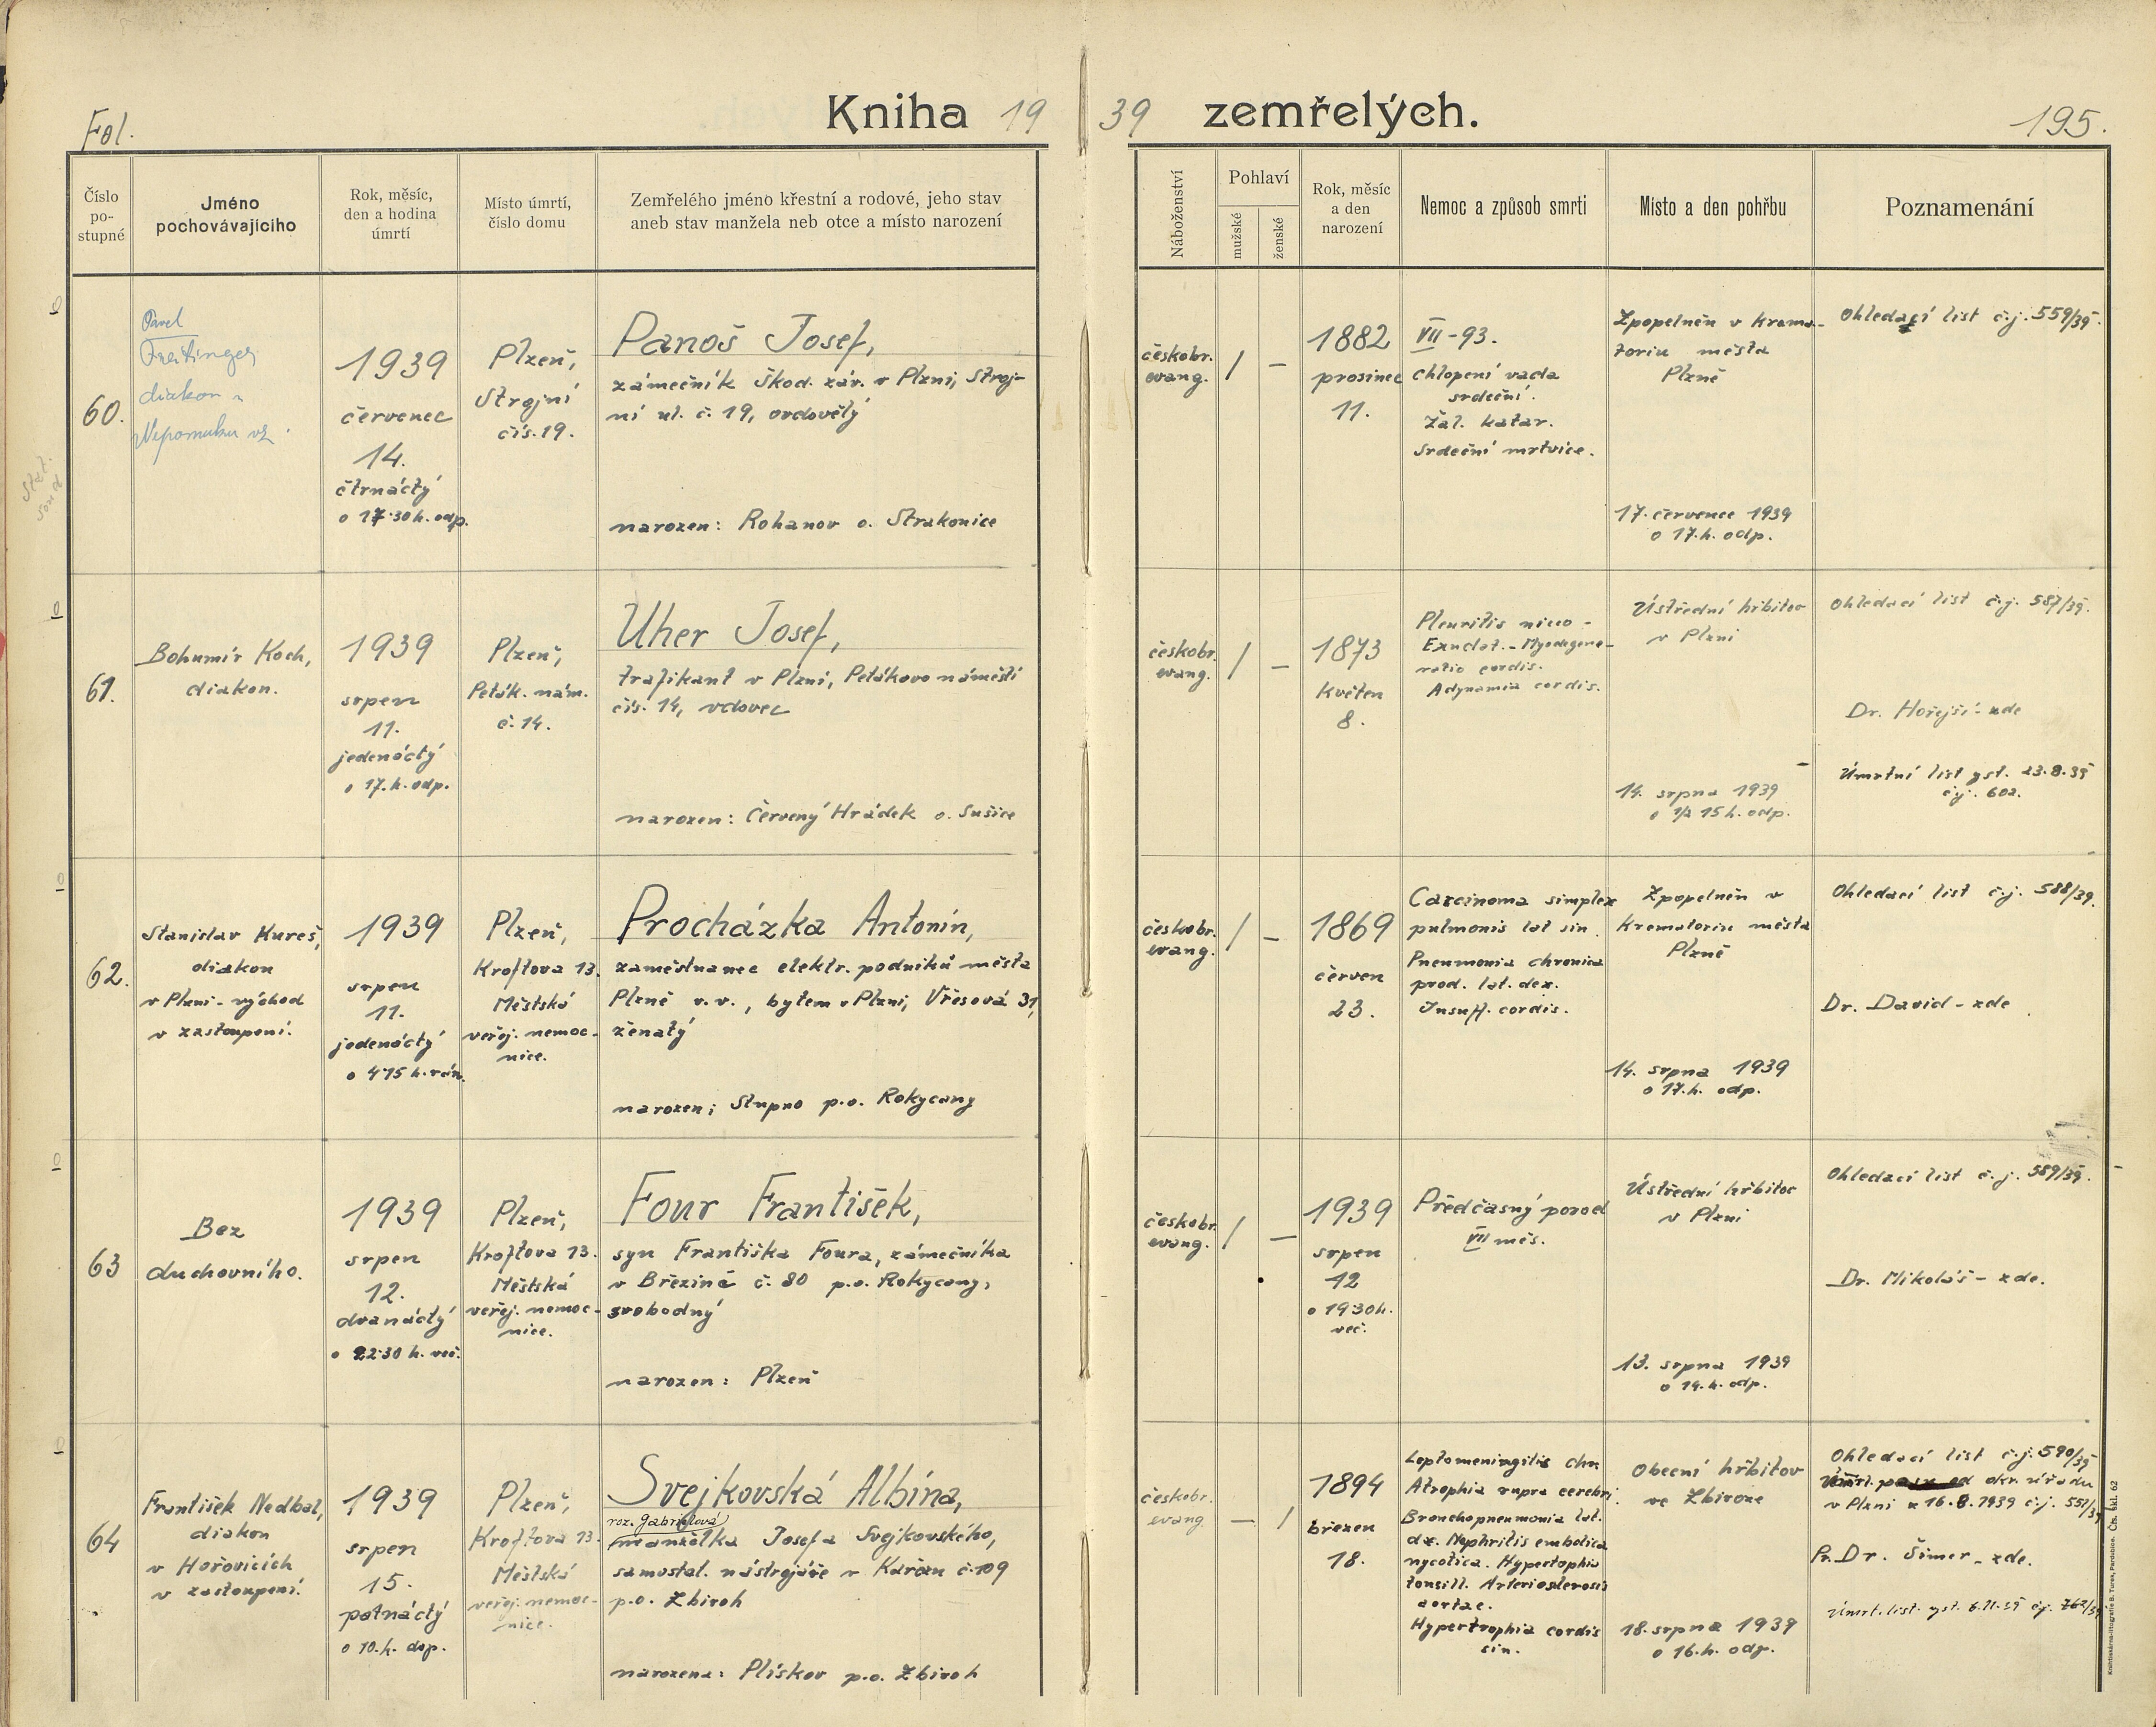 Fol.
Kniha 1939 zemřelých.
195.
Číslo po-stupné
Jméno pochovávajícího
Rok, měsíc, den a hodina úmrtí
Místo úmrtí, číslo domu
Zemřelého jméno křestní a rodové, jeho stav
aneb stav manžela neb otce a místo narození
Náboženství
Pohlaví
mužské
ženské
Rok, měsíc a den narození
Nemoc a způsob smrti
Místo a den pohřbu
Poznamenání
60.
Pavel
diakon
1939
červenec
14.
čtrnáctý
o 17·30 h. odp.
Plzeň,
Strojní
čís. 19.
Panoš Josef,
zámečník Škod. záv. v Plzni, Stroj-
ní ul. č. 19, ovdovělý
narozen: Rohanov o. Strakonice
českobr.
evang.
/
–
1882
prosinec
11.
VII-93.
chlopení vada
srdeční.
Žal. katar.
Srdeční mrtvice.
Zpopelněn v krema-
toriu města
Plzně
17. července 1939
o 17. h. odp.
Ohledací list č.j. 559/39.
61.
Bohumír Koch,
diakon.
1939
srpen
11.
jedenáctý
o 17. h. odp.
Plzeň,
Peták. nám.
č. 14.
Uher Josef,
trafikant v Plzni, Petákovo náměstí
čís. 14, vdovec
narozen: Červený Hrádek o. Sušice
českobr.
evang.
/
–
1873
květen
8.
Pleuritis
Exudat. - Myodegene-
ratio cordis.
Adynamia cordis.
Ústřední hřbitov
v Plzni
14. srpna 1939
o 1/2 15 h. odp.
Ohledací list č.j. 587/39.
Dr. Hořejší - zde
Úmrtní list yst. 23.8.39
č.j. 602.
62.
Stanislav Kureš,
diakon
v Plzni - východ
v zastoupení.
1939
srpen
11.
jedenáctý
o 4·15 h. rán.
Plzeň,
Kroftova 13.
Městská
veřej. nemoc-
nice.
Procházka Antonín,
zaměstnanec elektr. podniků města
Plzně v.v., bytem v Plzni, Vřesová 31,
ženatý
narozen; Stupno p.o. Rokycany
českobr.
evang.
/
–
1869
červen
23.
Carcinoma simplex
pulmonis lat sin.
Pneumonia chronica
prod. lat. dex.
Insuff. cordis.
Zpopelněn v
Krematoriu města
Plzně
14. srpna 1939
o 17. h. odp.
Ohledací list č.j. 588/39.
Dr. David - zde
63
Bez
duchovního.
1939
srpen
12.
dvanáctý
o 22·30 h. več.
Plzeň,
Kroftova 13.
Městská
veřej. nemoc-
nice.
Four František,
syn Františka Foura, zámečníka
v Březině č. 80 p.o. Rokycany,
svobodný
narozen: Plzeň
českobr.
evang.
/
–
1939
srpen
12
o 19·30 h.
več.
Předčasný porod
VII měs.
Ústřední hřbitov
v Plzni
13. srpna 1939
o 14. h. odp.
Ohledací list č.j. 589/39.
Dr. Mikoláš - zde.
64
František Nedbal,
diakon
v Hořovicích
v zastoupení.
1939
srpen
15.
patnáctý
o 10. h. dop.
Plzeň,
Kroftova 13.
Městská
veřej. nemoc-
nice.
Svejkovská Albína,
roz. Gabrielová
manželka Josefa Svejkovského,
samostat. nástrojáře v Kařízu č. 109
p.o. Zbiroh
narozena: Plískov p.o. Zbiroh
českobr.
evang.
–
/
1894
březen
18.
Leptomeningitis chr.
Atrophia cerebri
Bronchopneumonia lat.
dx. Nephritis embolica
mycotica. Hypertophia
tonsill. Arteriosclerosis
aortae.
Hypertrophia cordis
sin.
Obecní hřbitov
ve Zbiroze
18. srpna 1939
o 16. h. odp.
Ohledací list č.j. 590/39
okr. úřadu
v Plzni z 16.8.1939 č.j. 551/39
Pr. Dr. Šimer - zde.
Úmrt. list. yst. 6.11.39 č.j. 762/39